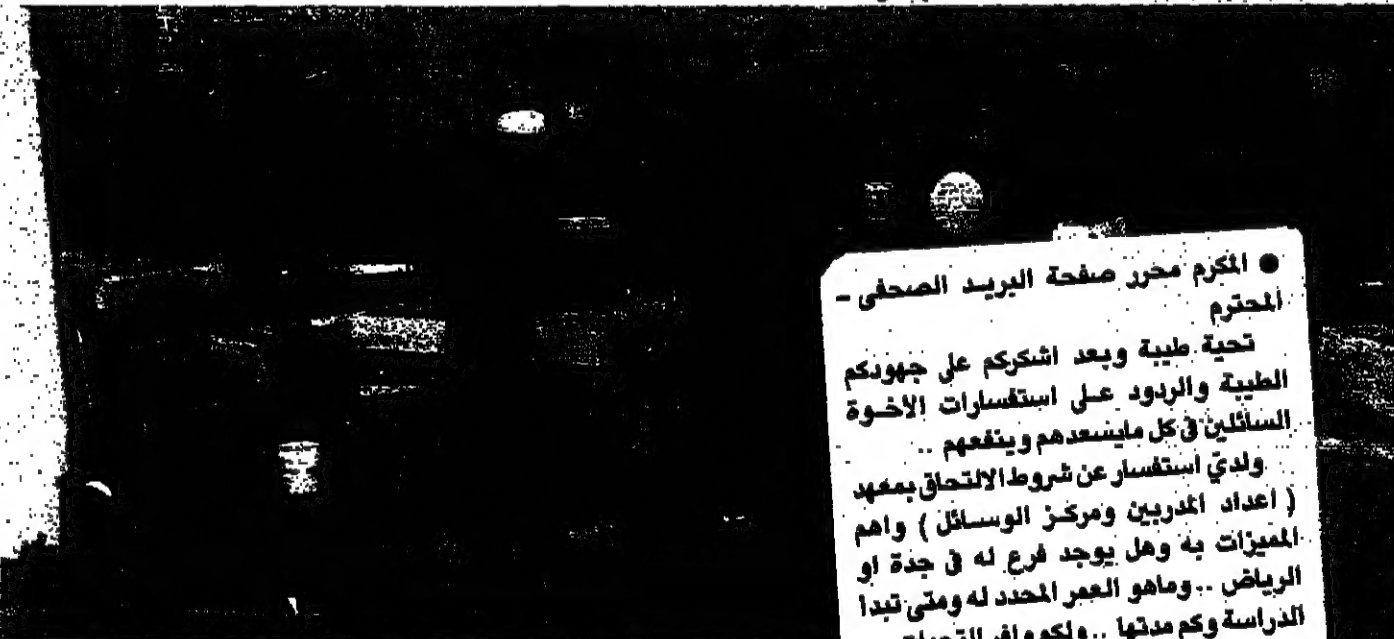 ● المكرم محرر صفحة البريد الصحفى –
المحترم
تحية طيبة وبعد اشكركم على جهودكم
الطيبة والردود على استفسارات الأخوة
السائلين فى كل مايسعدهم وينفعهم ..
ولديّ استفسار عن شروط الالتحاق بمعهد
( اعداد المدربين ومركز الوسائل ) واهم
المميزات به وهل يوجد فرع له فى جدة او
الرياض .. وماهو العمر المحدد له ومتى تبدا
الدراسة وكم مدتها .. ولكم وافر التحيات